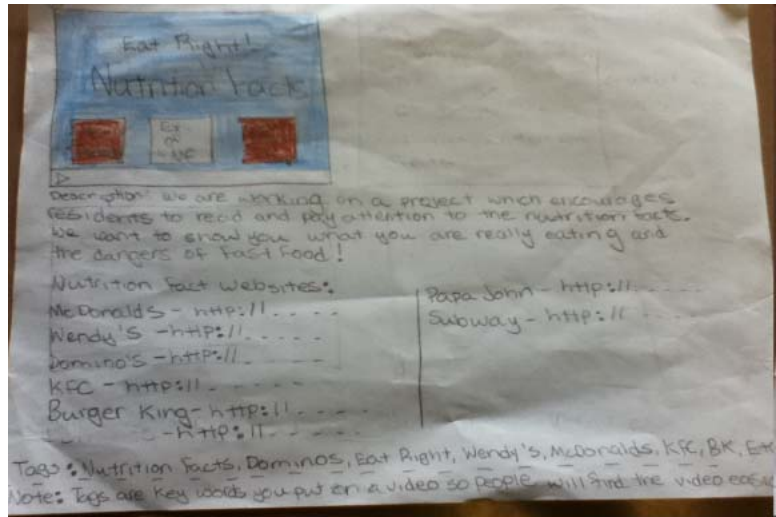 Eat Right!
Nutrition Facts
Description: we are working on a project which encourages
residents to read and pay attention to the nutrition facts.
We want to show you what you are really eating and
the dangers of fast food!
Nutrition fact websites:
McDonalds - http://. - - - -
Wendy's - http://. - - - -
Domino's - http://. - - - -
KFC - http://. - - - -
Burger King - http://. - - - -
- http://. - - - -
Papa John - http://. - - - -
Subway - http:// - - - -
Tags: Nutrition Facts, Dominos, Eat Right, Wendy's, McDonalds, KFC, BK, Etc
Note: Tags are key words you put on a video so people will find the video easy